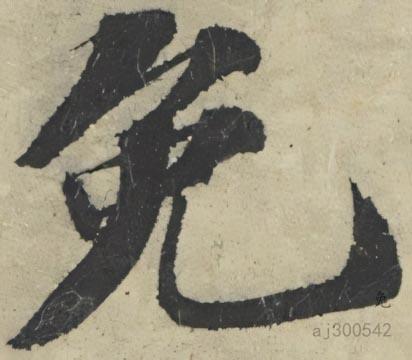 免
免
aj300542